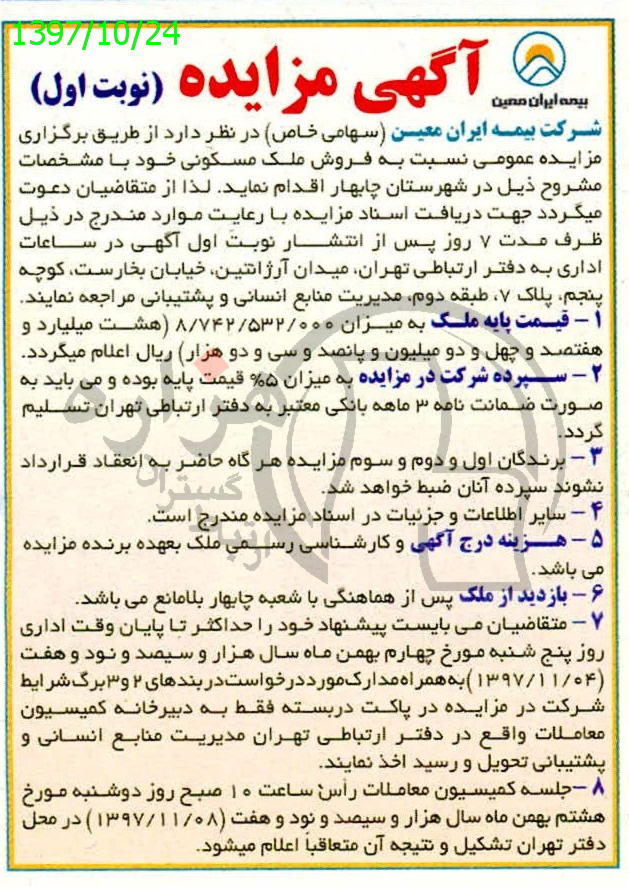 1397/10/24
بیمه ایران معین
آگهی مزایده (نوبت اول)
شرکت بیمه ایران معین (سهامی خاص) در نظر دارد از طریق برگزاری
مزایده عمومی نسبت به فروش ملک مسکونی خود با مشخصات
مشروح ذیل در شهرستان چابهار اقدام نماید. لذا از متقاضیان دعوت
میگردد جهت دریافت اسناد مزایده با رعایت موارد مندرج در ذیل
ظرف مدت ۷ روز پس از انتشار نوبت اول آگهی در ساعات
اداری به دفتر ارتباطی تهران، میدان آرژانتین، خیابان بخارست، کوچه
پنجم، پلاک ۷، طبقه دوم، مدیریت منابع انسانی و پشتیبانی مراجعه نمایند.
۱- قیمت پایه ملک به میزان ۸/۷۴۲/۵۳۲/۰۰۰ (هشت میلیارد و
هفتصد و چهل و دو میلیون و پانصد و سی و دو هزار) ریال اعلام میگردد.
۲- سپرده شرکت در مزایده به میزان ۵% قیمت پایه بوده و می باید به
صورت ضمانت نامه ۳ ماهه بانکی معتبر به دفتر ارتباطی تهران تسلیم
گردد.
۳- برندگان اول و دوم و سوم مزایده هر گاه حاضر به انعقاد قرارداد
نشوند سپرده آنان ضبط خواهد شد.
۴- سایر اطلاعات و جزئیات در اسناد مزایده مندرج است.
۵- هزینه درج آگهی و کارشناسی رسمی ملک بعهده برنده مزایده
می باشد.
۶- بازدید از ملک پس از هماهنگی با شعبه چابهار بلامانع می باشد.
۷- متقاضیان می بایست پیشنهاد خود را حداکثر تا پایان وقت اداری
روز پنج شنبه مورخ چهارم بهمن ماه سال هزار و سیصد و نود و هفت
(۱۳۹۷/۱۱/۰۴) به همراه مدارک مورد درخواست در بندهای ۲ و ۳ برگ شرایط
شرکت در مزایده در پاکت دربسته فقط به دبیرخانه کمیسیون
معاملات واقع در دفتر ارتباطی تهران مدیریت منابع انسانی و
پشتیبانی تحویل و رسید اخذ نمایند.
۸- جلسه کمیسیون معاملات رأس ساعت ۱۰ صبح روز دوشنبه مورخ
هشتم بهمن ماه سال هزار و سیصد و نود و هفت (۱۳۹۷/۱۱/۰۸) در محل
دفتر تهران تشکیل و نتیجه آن متعاقباً اعلام میشود.
هزاره
گستران
ارتباط